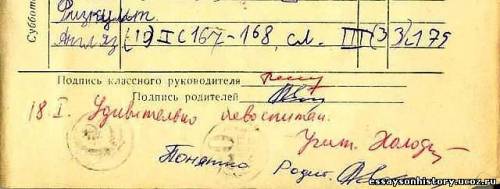 Суббота
Физкульт.
Англяз (12) I с 167-168, сл. III (3 3) с 179
Подпись классного руководителя
Подпись родителей
18 I. Удивительно невоспитан.
Учит. Холод
Понятно Родит.
essaysonhistory.ucoz.ru